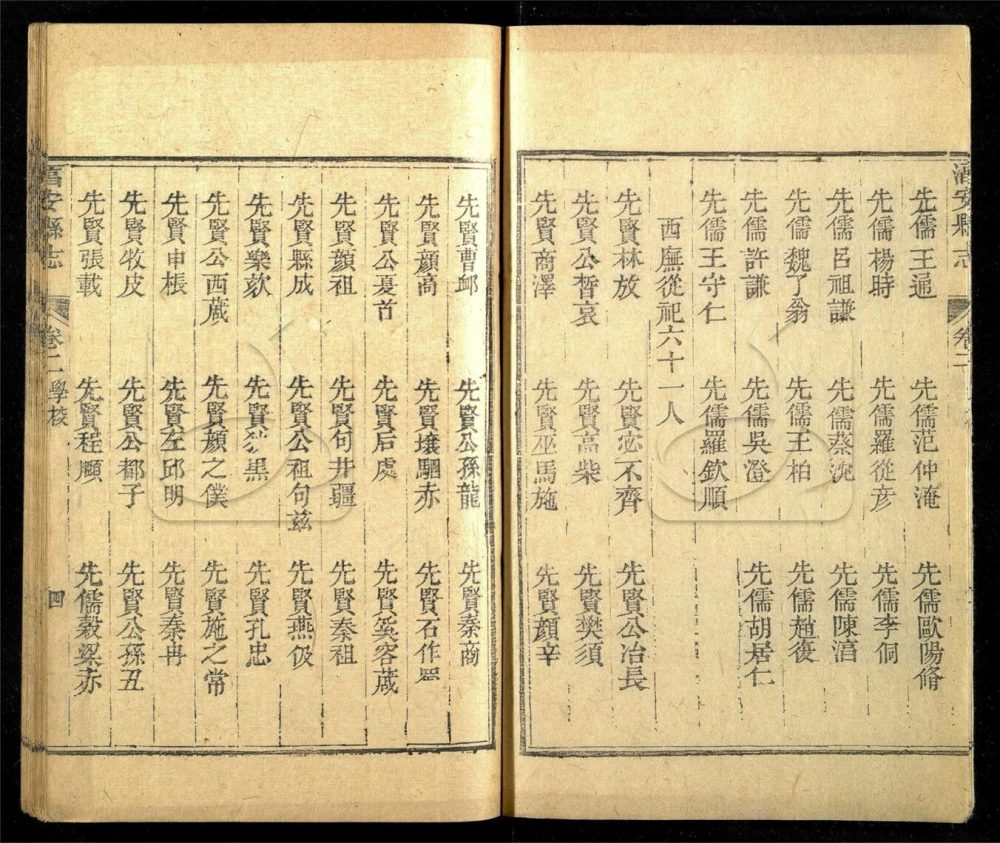 高安縣志 卷二
先儒王通 先儒范仲淹 先儒歐陽脩
先儒楊時 先儒羅從彦 先儒李侗
先儒呂祖謙 先儒蔡沈 先儒陳澔
先儒魏了翁 先儒王柏 先儒趙復
先儒許謙 先儒吳澄 先儒胡居仁
先儒王守仁 先儒羅欽順
西廡從祀六十一人
先賢林放 先賢宓不齊 先賢公冶長
先賢公皙哀 先賢高柴 先賢樊須
先賢商澤 先賢巫馬施 先賢顔辛
先賢曹䘏 先賢公孫龍 先賢秦商
先賢顔高 先賢壤駟赤 先賢石作蜀
先賢公夏首 先賢后處 先賢奚容蒧
先賢顔祖 先賢句井疆 先賢秦祖
先賢縣成 先賢公祖句兹 先賢燕伋
先賢樂欬 先賢狄黑 先賢孔忠
先賢公西蒧 先賢顔之僕 先賢施之常
先賢申棖 先賢左邱明 先賢秦冉
先賢牧皮 先賢公都子 先賢公孫丑
先賢張載 先賢程頤 先儒穀梁赤
高安縣志 卷二 學校 四